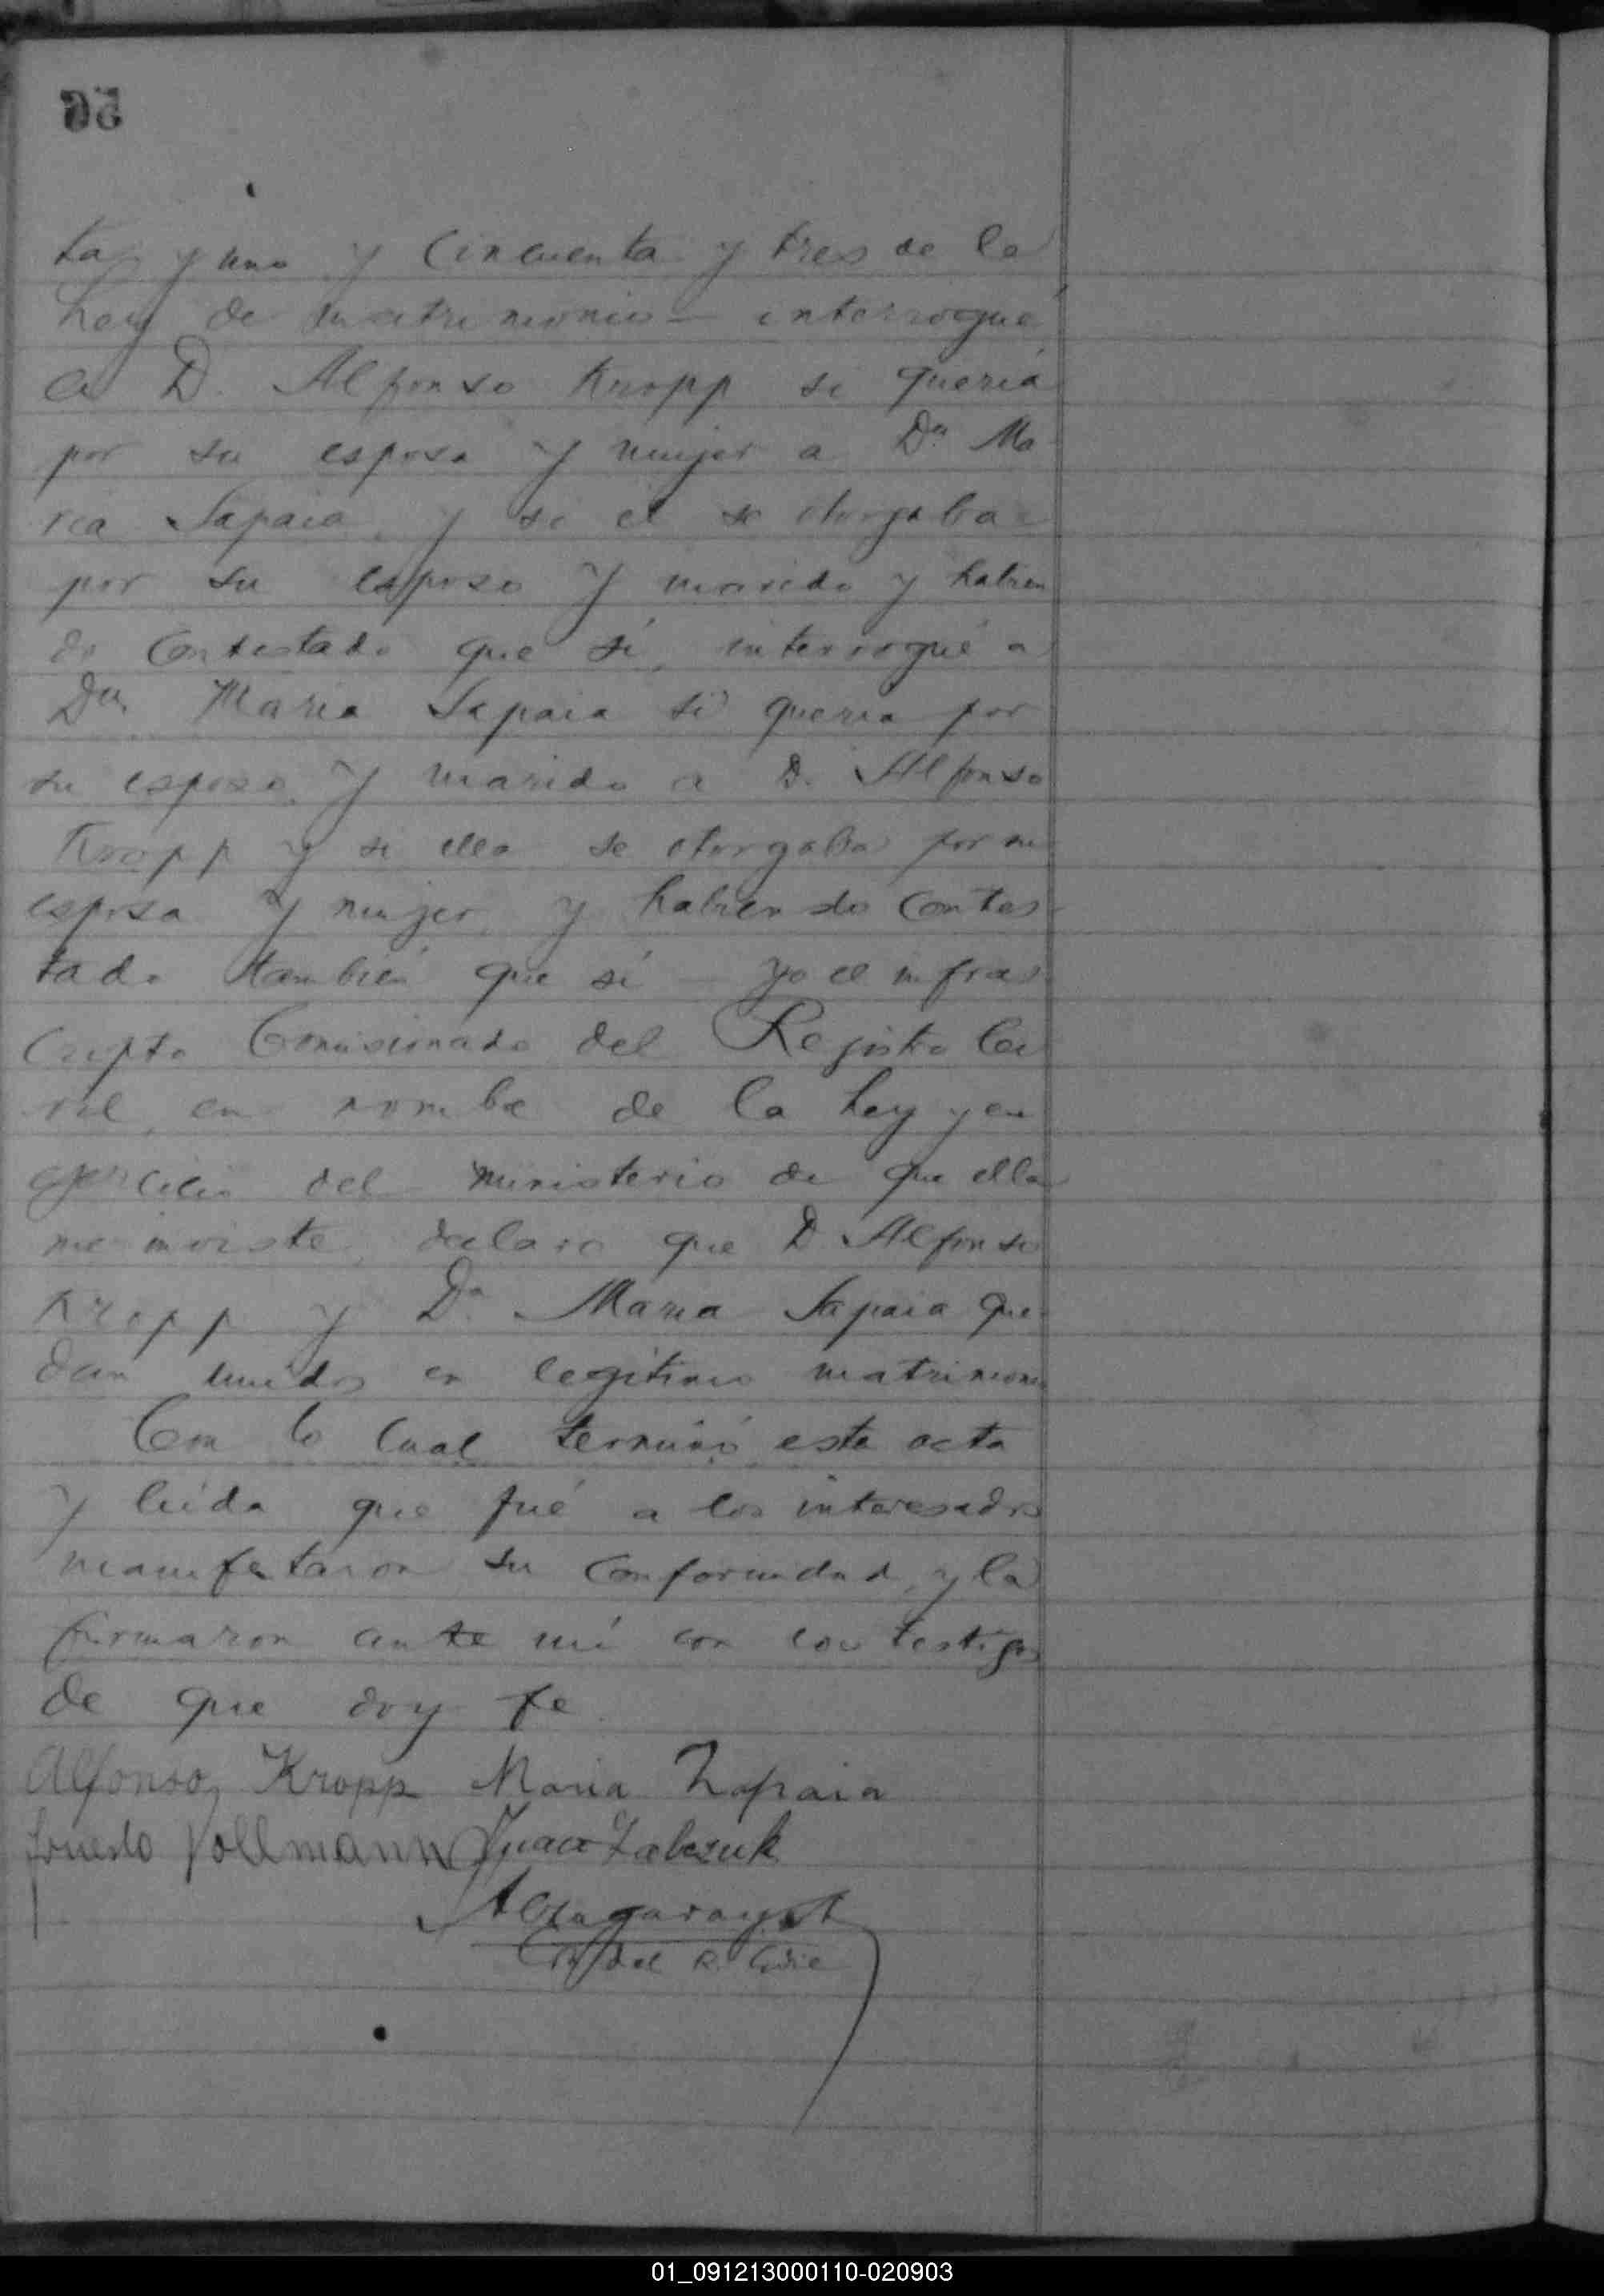 95
ta y uno y Cincuenta y tres de la
Ley de matrimonio — interrogué
a D. Alfonso Kropp si quería
por su esposa y mujer a Dª Ma
ria Sapaia, y si el se otorgaba
por su esposo y marido y habien
do Contestado que sí, interrogué a
Dª María Sapaia si queria por
su esposo y marido a D. Alfonso
Kropp y si ella se otorgaba por su
esposa y mujer y habiendo contes-
tado también que sí — yo el infras-
cripto Comisionado del Registro Ci
vil, en nombre de la Ley y en
ejercicio del ministerio de que ella
me inviste, declaro que D. Alfonso
Kropp y Dª Maria Sapaia que-
dan unidos en legítimo matrimonio
Con lo Cual terminó esta acta
y leída que fué a los interesados
manifestaron su conformidad, y la
firmaron ante mí con los testigos
de que doy fe.
Alfonso Kropp Maria Zapaia
Vollmann
del R. Civil
01_091213000110-020903